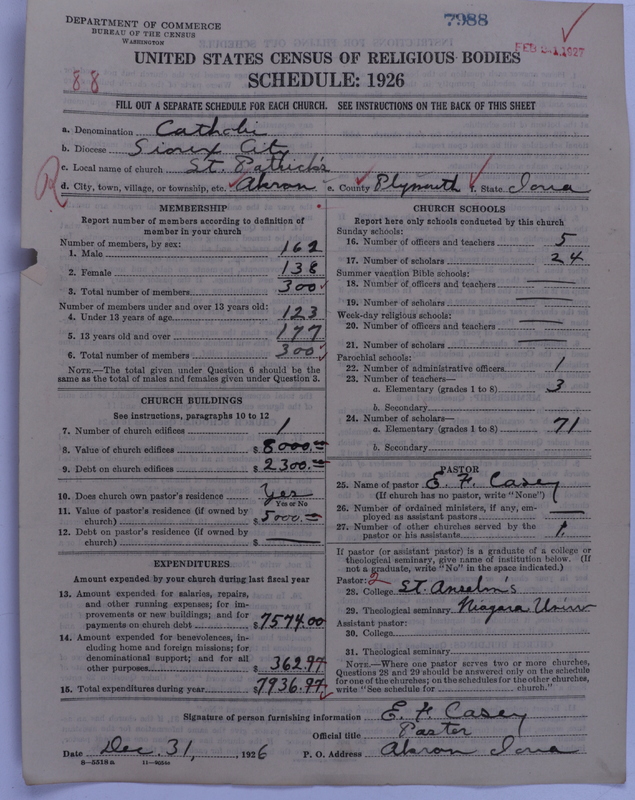 DEPARTMENT OF COMMERCE
BUREAU OF THE CENSUS
WASHINGTON
7988
FEB 1927
UNITED STATES CENSUS OF RELIGIOUS BODIES
88
SCHEDULE: 1926
FILL OUT A SEPARATE SCHEDULE FOR EACH CHURCH. SEE INSTRUCTIONS ON THE BACK OF THIS SHEET
a. Denomination Catholic
b. Diocese Sioux City
c. Local name of church St. Patrick's
d. City, town, village, or township, etc. Akron e. County Plymouth f. State Iowa
MEMBERSHIP
Report number of members according to definition of
member in your church
Number of members, by sex:
1. Male 162
2. Female 138
3. Total number of members 300
Number of members under and over 13 years old:
4. Under 13 years of age 123
5. 13 years old and over 177
6. Total number of members 300
NOTE.—The total given under Question 6 should be the
same as the total of males and females given under Question 3.
CHURCH BUILDINGS
See instructions, paragraphs 10 to 12
7. Number of church edifices 1
8. Value of church edifices $ 8000.00
9. Debt on church edifices $ 2300.00
10. Does church own pastor's residence Yes
Yes or No
11. Value of pastor's residence (if owned by
church) $ 5000.00
12. Debt on pastor's residence (if owned by
church) $ —
EXPENDITURES
Amount expended by your church during last fiscal year
13. Amount expended for salaries, repairs,
and other running expenses; for im-
provements or new buildings; and for
payments on church debt $ 7574.00
14. Amount expended for benevolences, in-
cluding home and foreign missions; for
denominational support; and for all
other purposes $ 362.97
15. Total expenditures during year $ 7936.97
CHURCH SCHOOLS
Report here only schools conducted by this church
Sunday schools:
16. Number of officers and teachers 5
17. Number of scholars 24
Summer vacation Bible schools:
18. Number of officers and teachers —
19. Number of scholars —
Week-day religious schools:
20. Number of officers and teachers —
21. Number of scholars —
Parochial schools:
22. Number of administrative officers 1
23. Number of teachers—
a. Elementary (grades 1 to 8) 3
b. Secondary
24. Number of scholars—
a. Elementary (grades 1 to 8) 71
b. Secondary
PASTOR
25. Name of pastor E. F. Casey
(If church has no pastor, write "None")
26. Number of ordained ministers, if any, em-
ployed as assistant pastors —
27. Number of other churches served by the
pastor or his assistants 1
If pastor (or assistant pastor) is a graduate of a college or
theological seminary, give name of institution below. (If
not a graduate, write "No" in the space indicated.)
Pastor: 2
28. College St. Anselm's
29. Theological seminary Niagara Univ
Assistant pastor:
30. College
31. Theological seminary
NOTE.—Where one pastor serves two or more churches,
Questions 28 and 29 should be answered only on the schedule
for one of the churches; on the schedules for the other churches,
write "See schedule for church."
Signature of person furnishing information E. F. Casey
Official title Pastor
Date Dec. 31, 1926 P. O. Address Akron Iowa